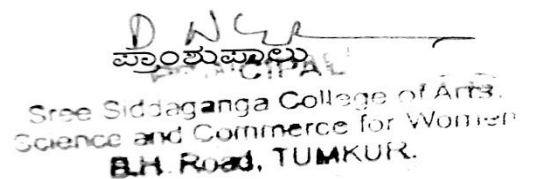 ಪ್ರಾಂಶುಪಾಲರು
PRINCIPAL
Sree Siddaganga College of Arts.
Science and Commerce for Women
B.H. Road, TUMKUR.